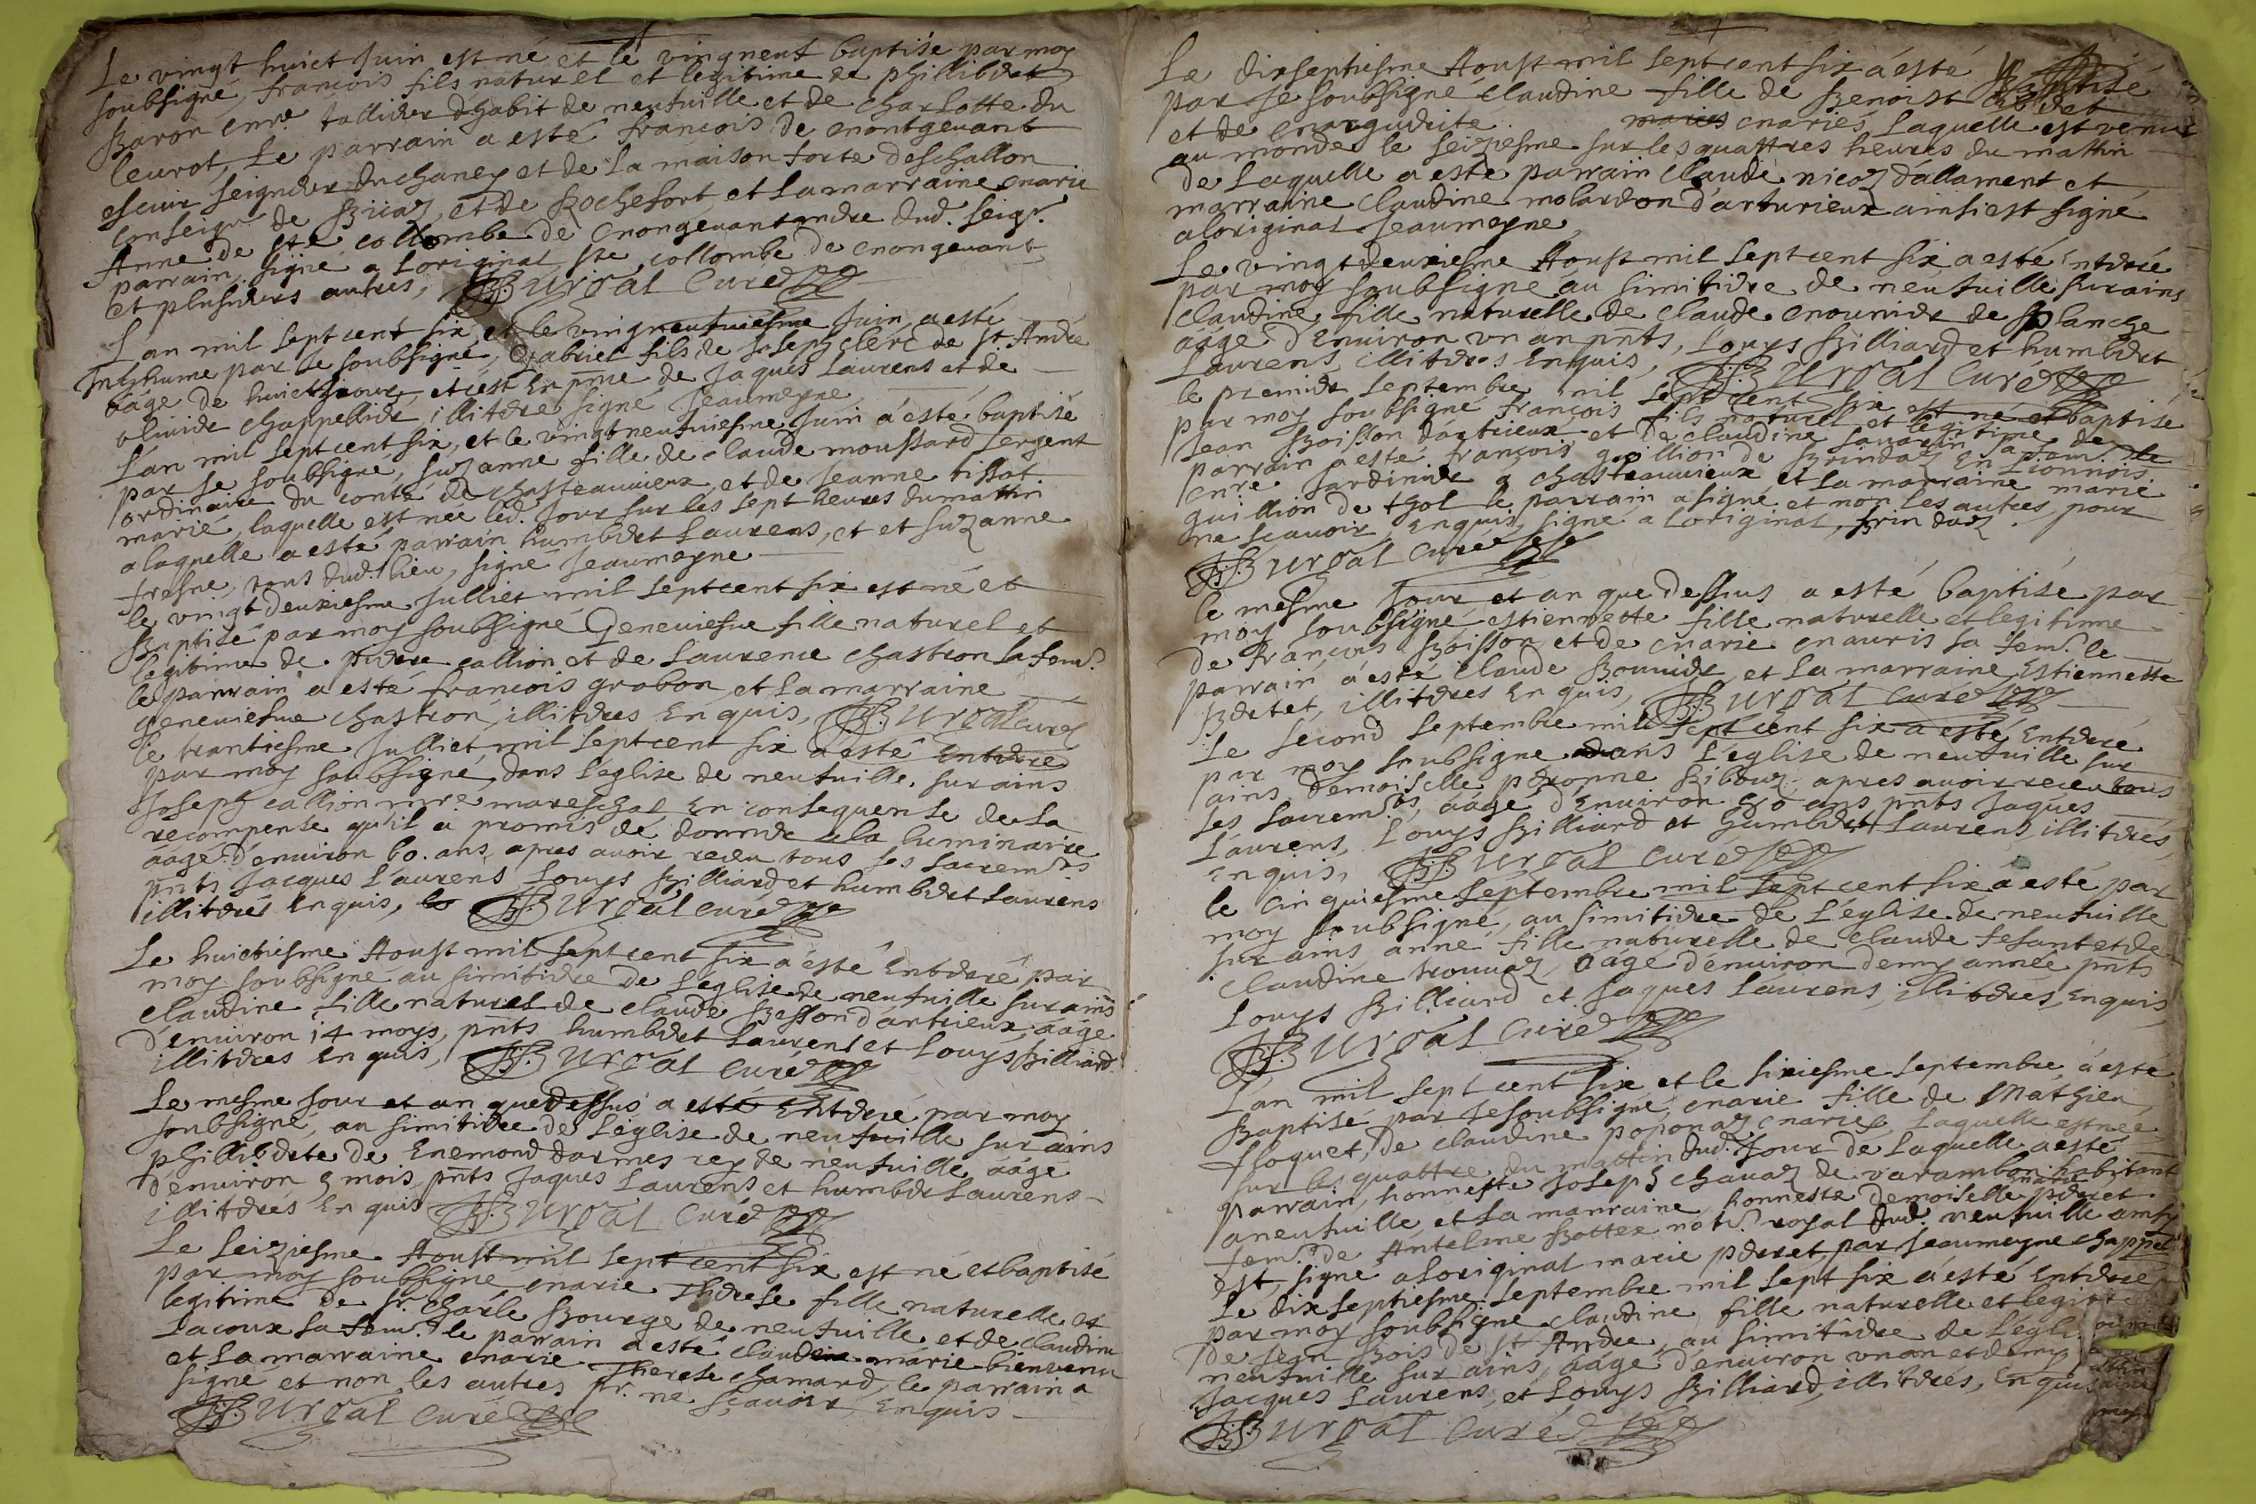 Le vingt huict Juin est né et le vingneuf baptisé par moy
soubsigné, francois fils naturel et legitime de phillibert
Baron enre tallieur d'habit de neufuille et de charlotte du
leurot, Le parrain a esté francois de montgeuant
escuier seigneur du chaney et de la maison forte deschallon
conseigr de Buaz, et de Rochefort et la marraine marie
Anne de ste collombe de mongeuant mdre dud. seigr.
parrain, signé a l'original ste collombe de mongeuant
et plusieurs autres, Burdal Curé
L'an mil sept cent six, et le vingneufuiesme Juin a esté
Inhhumé par Je soubsigné, Gabriel fils de Joseph clerc de st André
aage de huict jours, et c'est En pnce de Jaques Laurens et de
oliuier chappellier illiterés signé Jeaumegne
L'an mil sept cent six, et le vingtneufuiesme Juin a esté baptisé
par Je soubsigné, suzanne fille de claude moussard sergent
ordinaire du conté de chasteauuieux et de Jeanne tissot
marié, laquelle est née led. Jour sur les sept heures du mattin
a laquelle a esté parrain humbert Laurens, et et suzanne
fresne, tous dud. lieu, signé Jeaumegne
le vingt deuxiesme Julliet mil sept cent six est né et
Baptisé par moy soubsigné Geneuiesue fille naturel et
legitime de pierre callion et de Laurence chastron sa fem.
le parrain a esté francois grobon et la marraine
geneuiesue chastron, illiterés Enquis, Burdal curé
le trantiesme Julliet mil sept cent six a esté Enteré
par moy soubsigné, dans l'eglise de neufuille sur ains
Joseph callion mre mareschal En consequence de la
recompense qu'il a promis de donner a la luminaire
aagé d'enuiron 60. ans, apres auoir receu tous les sacremts
pnts Jacques Laurens Louys Billiard et humbert Laurens
illiterés Enquis, Burdal curé
Le huictiesme Aoust mil sept cent six a esté Enteré par
moy soubsigné au simitiere de l'eglise de neufuille sur ains
claudine fille naturel de claude Besson d'antrieux, aage
d'enuiron 14 moys, pnts humbert Laurens et Louys Billiard
illiterés Enquis, Burdal Curé
Le mesme Jour et an que dessus a esté Enteré par moy
soubsigné, au simitiere de l'eglise de neufuille sur ains
phillibert de Enemond darmes rey de neufuille aage
d'enuiron 5 mois, pnts Jaques Laurens et humbert Laurens
illiterés Enquis Burdal Curé
Le seiziesme Aoust mil sept cent six est né et baptisé
par moy soubsigné marie Therese fille naturelle et
legitime de sr. charle Bourge de neufuille et de claudine
Lacoux sa fem. le parrain a esté claude marie bienvenu
et la marraine marie Therese chamard, le parrain a
signé et non les autres pr. ne sçauoir Enquis
Burdal Curé
Le dixseptiesme Aoust mil sept cent six a esté Baptisé
par Je soubsigné claudine fille de Benoist
et de marguerite mariés Laquelle est venue
au monde le seiziesme sur les quattres heures du mattin
de Laquelle a esté parrain claude nicoz d'allament et
marraine claudine molardon d'arturieux ainsi est signé
a l'original Jeaumegne
Le vingtdeuxiesme Aoust mil sept cent six a esté Enteré
par moy soubsigné au simitiere de neufuille sur ains
claudine fille naturelle de claude mounier de planche
aagé d'Enuiron un an pnts, Louys Billiard et humbert
Laurens, illiterés Enquis, Burdal Curé
le premier septembre mil sept cent six est né et baptisé
par moy soubsigné francois fils naturel et legitime de
Jean Boisson d'artrieux et de claudine sauarin sa fem. le
parrain a esté francois guillion de Brindaz En Lionnois
mre Jardinier a chasteauuieux et la marraine marie
guillion de thol le parrain a signé et non les autres, pour
ne sçauoir, Enquis, signé a l'original, Brindaz.
Burdal curé
le mesme Jour et an que dessus a esté baptisé par
moy soubsigné estiennette fille naturelle et legitime
de francois Boisson et de marie mauris sa fem. le
parrain a esté claude Bouuier et la marraine Estiennette
Bertet, illiterés Enquis, Burdal curé
Le second septembre mil sept cent six a esté Enteré
par moy soubsigné dans l'eglise de neufuille sur
ains demoiselle peronne Riboux, apres auoir receu tous
les sacremts, aagé d'Enuiron 50 ans pnts Jaques
Laurens, Louys Billiard et humbert Laurens, illiterés,
Enquis, Burdal curé
le cinquiesme septembre mil sept cent six a esté par
moy soubsigné, au simitiere de l'eglise de neufuille
sur ains, anne fille naturelle de claude fesant et de
claudine trouuaz, aage d'enuiron demy année pnts
Louys Billiard et Jaques Laurens, illiterés, Enquis
Burdal Curé
L'an mil sept cent six et le sixiesme septembre, a esté
Baptisé par Je soubsigné, marie fille de Mathieu
floquet, de claudine poponaz mariés, laquelle est née
sur les quattre du mattin dud. Jour de laquelle a esté
parrain, honneste Joseph chauaz de varambon habitant
a neufuille et la marraine, honneste demoiselle marie peret
fem. de Antelme Bottex notr. royal dud. neufuille ainsy
est, signé a l'original marie peret, par Jeaumegne chappel.
Le dix septiesme septembre mil sept six a esté Enteré
par moy soubsigné claudine fille naturelle et legit
de Jean Bois de st Andre, au simitiere de l'egli
neufuille sur ains, aage d'enuiron un an et demy
Jacques Laurens, et Louys Billiard, illiterés, Enquis
Burdal Curé